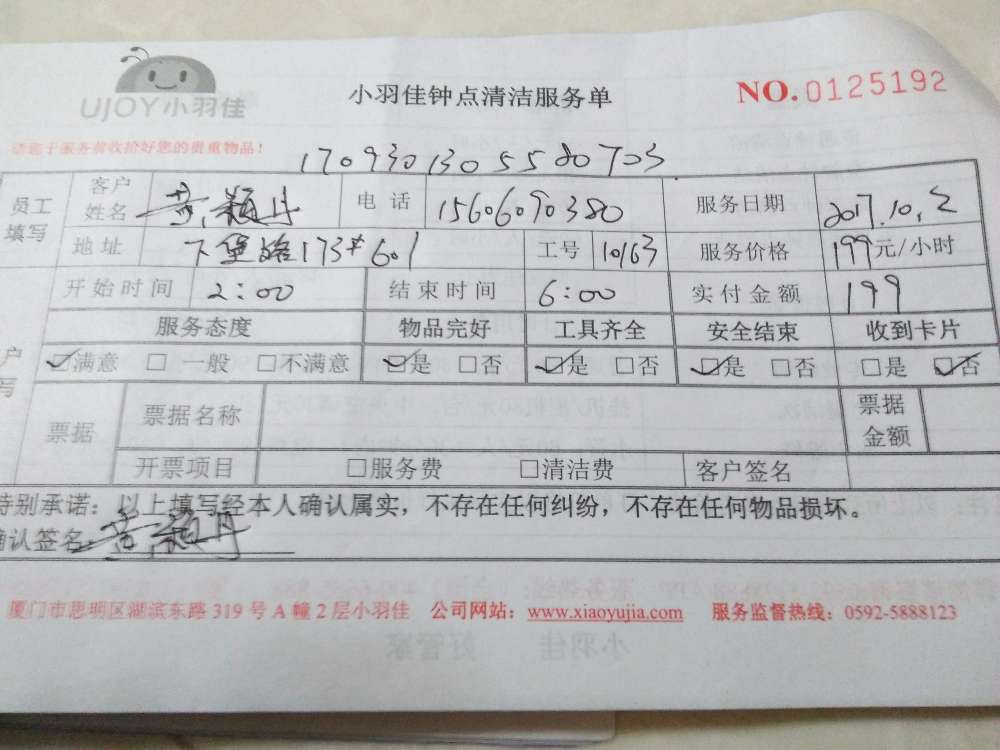 UJOY小羽佳
小羽佳钟点清洁服务单
NO.0125192
请您于服务前收拾好您的贵重物品！
1709301305580703
员工填写 客户姓名 黄颖丹 电话 15606090380 服务日期 2017.10.2
地址 下堡路173#601 工号 10163 服务价格 199元/小时
开始时间 2:00 结束时间 6:00 实付金额 199
户写 服务态度 物品完好 工具齐全 安全结束 收到卡片
☑满意 □一般 □不满意 ☑是 □否 ☑是 □否 ☑是 □否 □是 ☑否
票据 票据名称 票据金额
开票项目 □服务费 □清洁费 客户签名
特别承诺：以上填写经本人确认属实，不存在任何纠纷，不存在任何物品损坏。
确认签名 黄颖丹
厦门市思明区湖滨东路319号A幢2层小羽佳 公司网站：www.xiaoyujia.com 服务监督热线：0592-5888123